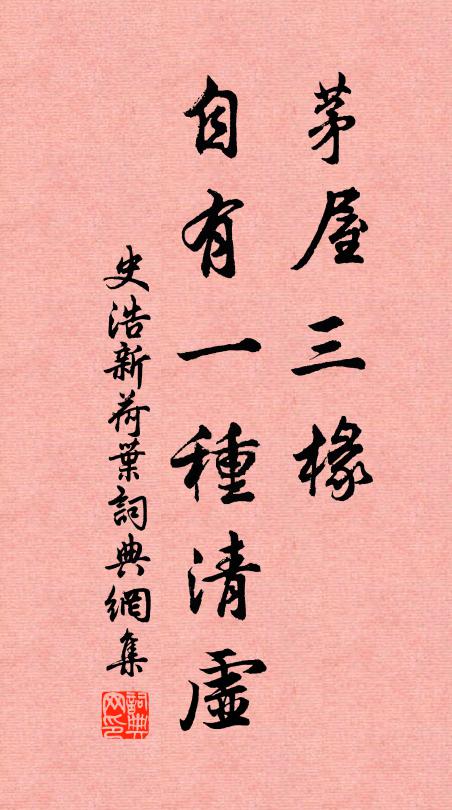 茅屋三椽
自有一種清虛
史浩新荷葉詞典網集
詞典网印